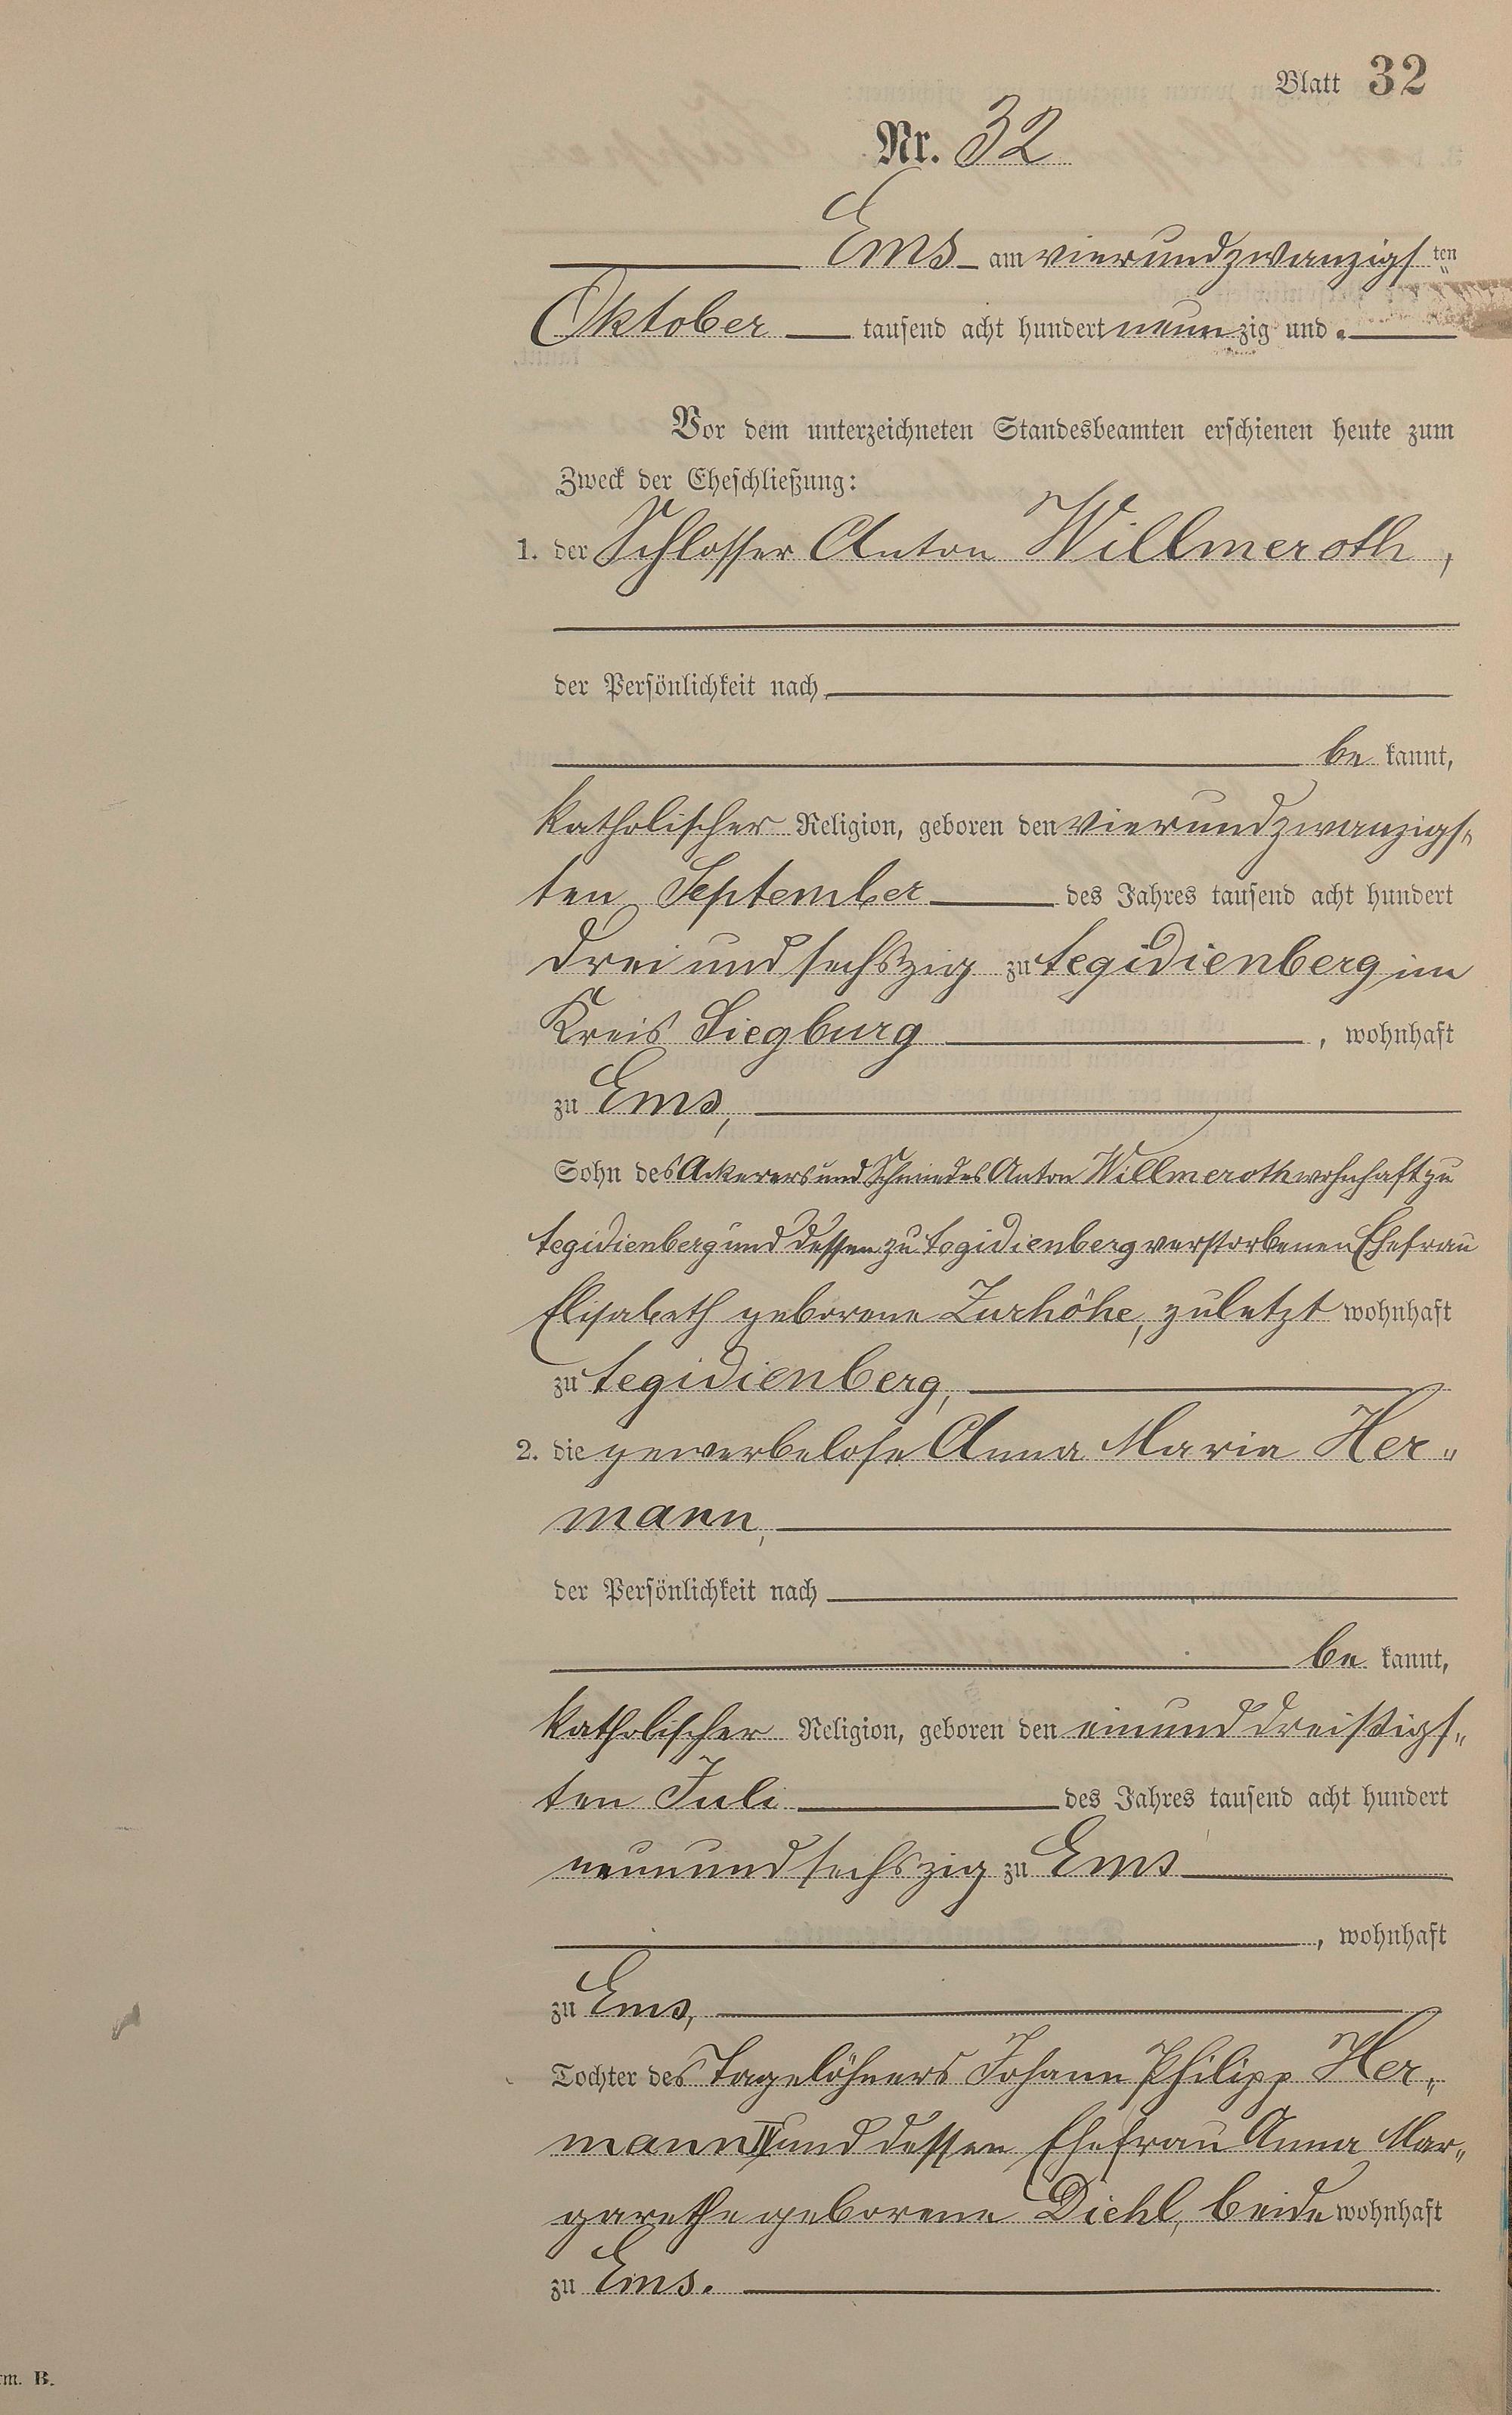 Blatt 32
Nr. 32
Ems am vierundzwanzigsten
Oktober tausend acht hundert neunzig und
Vor dem unterzeichneten Standesbeamten erschienen heute zum
Zweck der Eheschließung:
1. der Schlosser Anton Willmeroth,
der Persönlichkeit nach
be kannt,
katholischer Religion, geboren den vierundzwanzigs-
ten September des Jahres tausend acht hundert
drei und sechszig zu Aegidienberg im
Kreis Siegburg, wohnhaft
zu Ems,
Sohn des Ackerers und Schmiedes Anton Willmeroth wohnhaft zu
Aegidienberg und dessen zu Aegidienberg verstorbenen Ehefrau
Elisabeth geborene Zurhöhe, zuletzt wohnhaft
zu Aegidienberg,
2. die gewerbelose Anna Maria Her-
mann,
der Persönlichkeit nach
be kannt,
katholischer Religion, geboren den einunddreißigs-
ten Juli des Jahres tausend acht hundert
neunundsechszig zu Ems
, wohnhaft
zu Ems,
Tochter des Tagelöhners Johann Philipp Her-
mann II und dessen Ehefrau Anna Mar-
garethe geborene Diehl, beide wohnhaft
zu Ems.
rm. B.